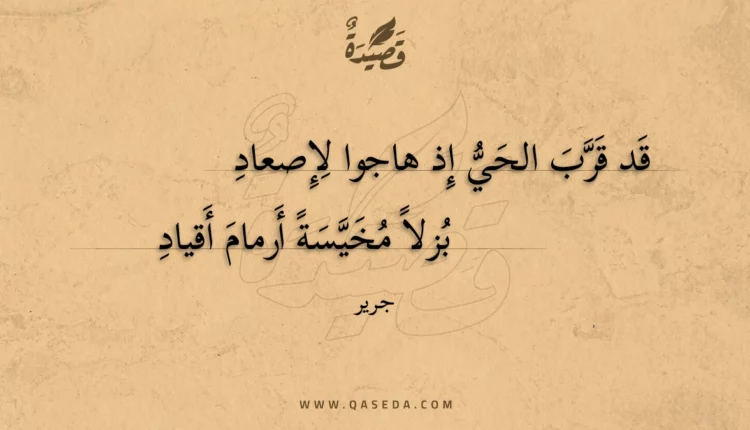 قَصِيْدَةٌ
قَد قَرَّبَ الحَيُّ إِذ هاجوا لِإِصعادِ
بُزلاً مُخَيَّسَةً أَرمامَ أَقيادِ
جرير
WWW.QASEDA.COM